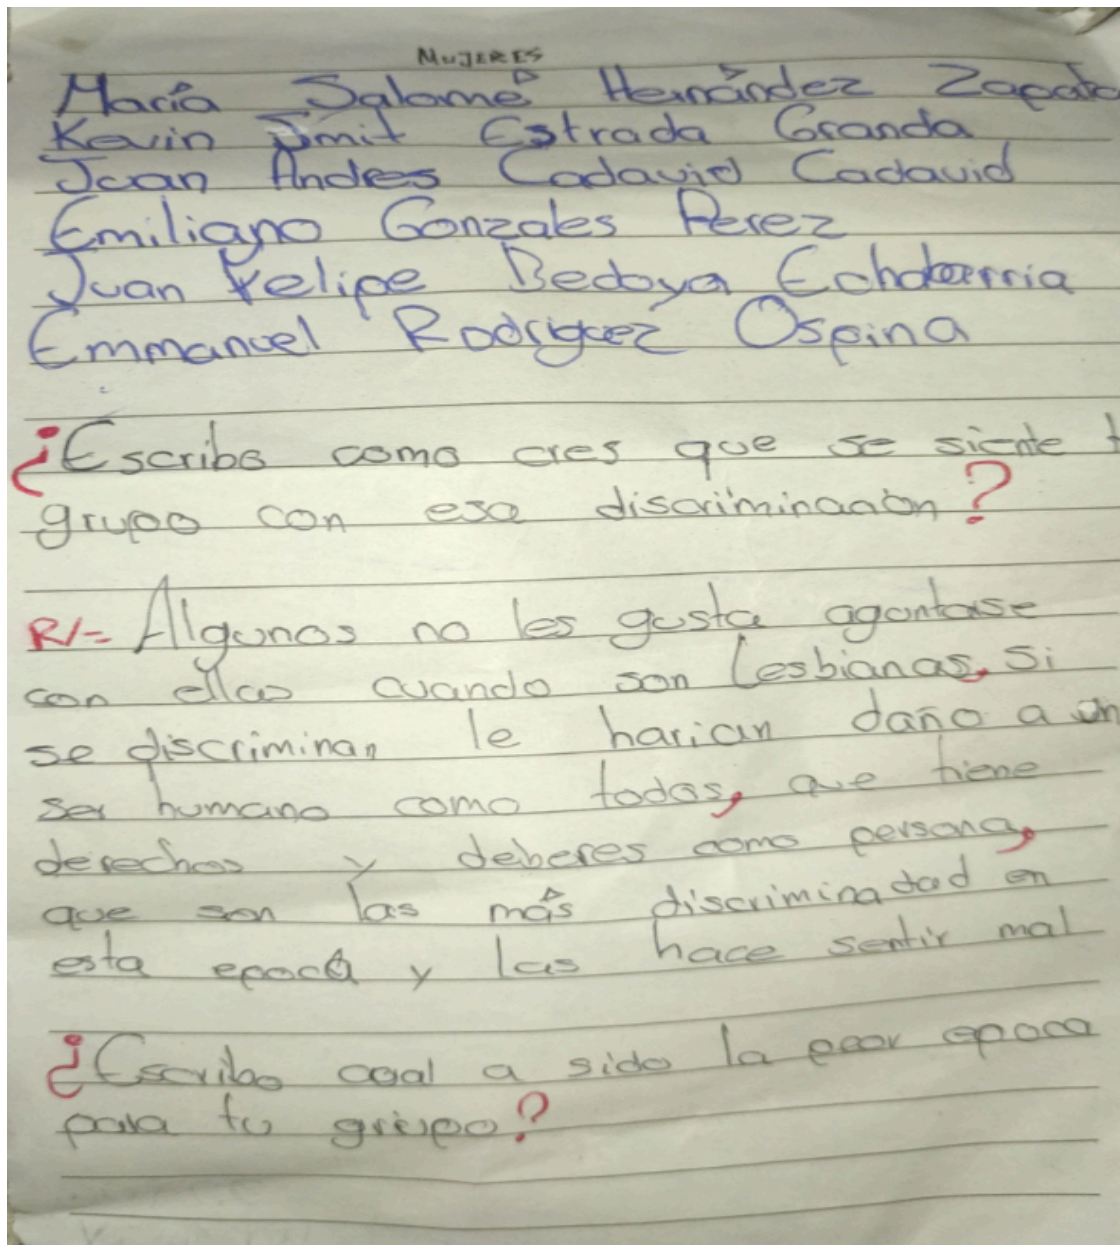 MUJERES
María Salomé Hernández Zapata
Kevin Smit Estrada Granda
Juan Andres Cadavid Cadavid
Emiliano Gonzales Perez
Juan Felipe Bedoya
Emmanuel Rodriguez Ospina
¿Escriba como cres que se siente t
grupo con esa discriminación?
R/= Algunos no les gusta
con ellas cuando son lesbianas, si
se discriminan le harian daño a un
ser humano como todos, que tiene
derechos y deberes como persona,
que son las más discriminadad en
esta epoca y las hace sentir mal
¿Escriba cual a sido la peor epoca
para tu grupo?